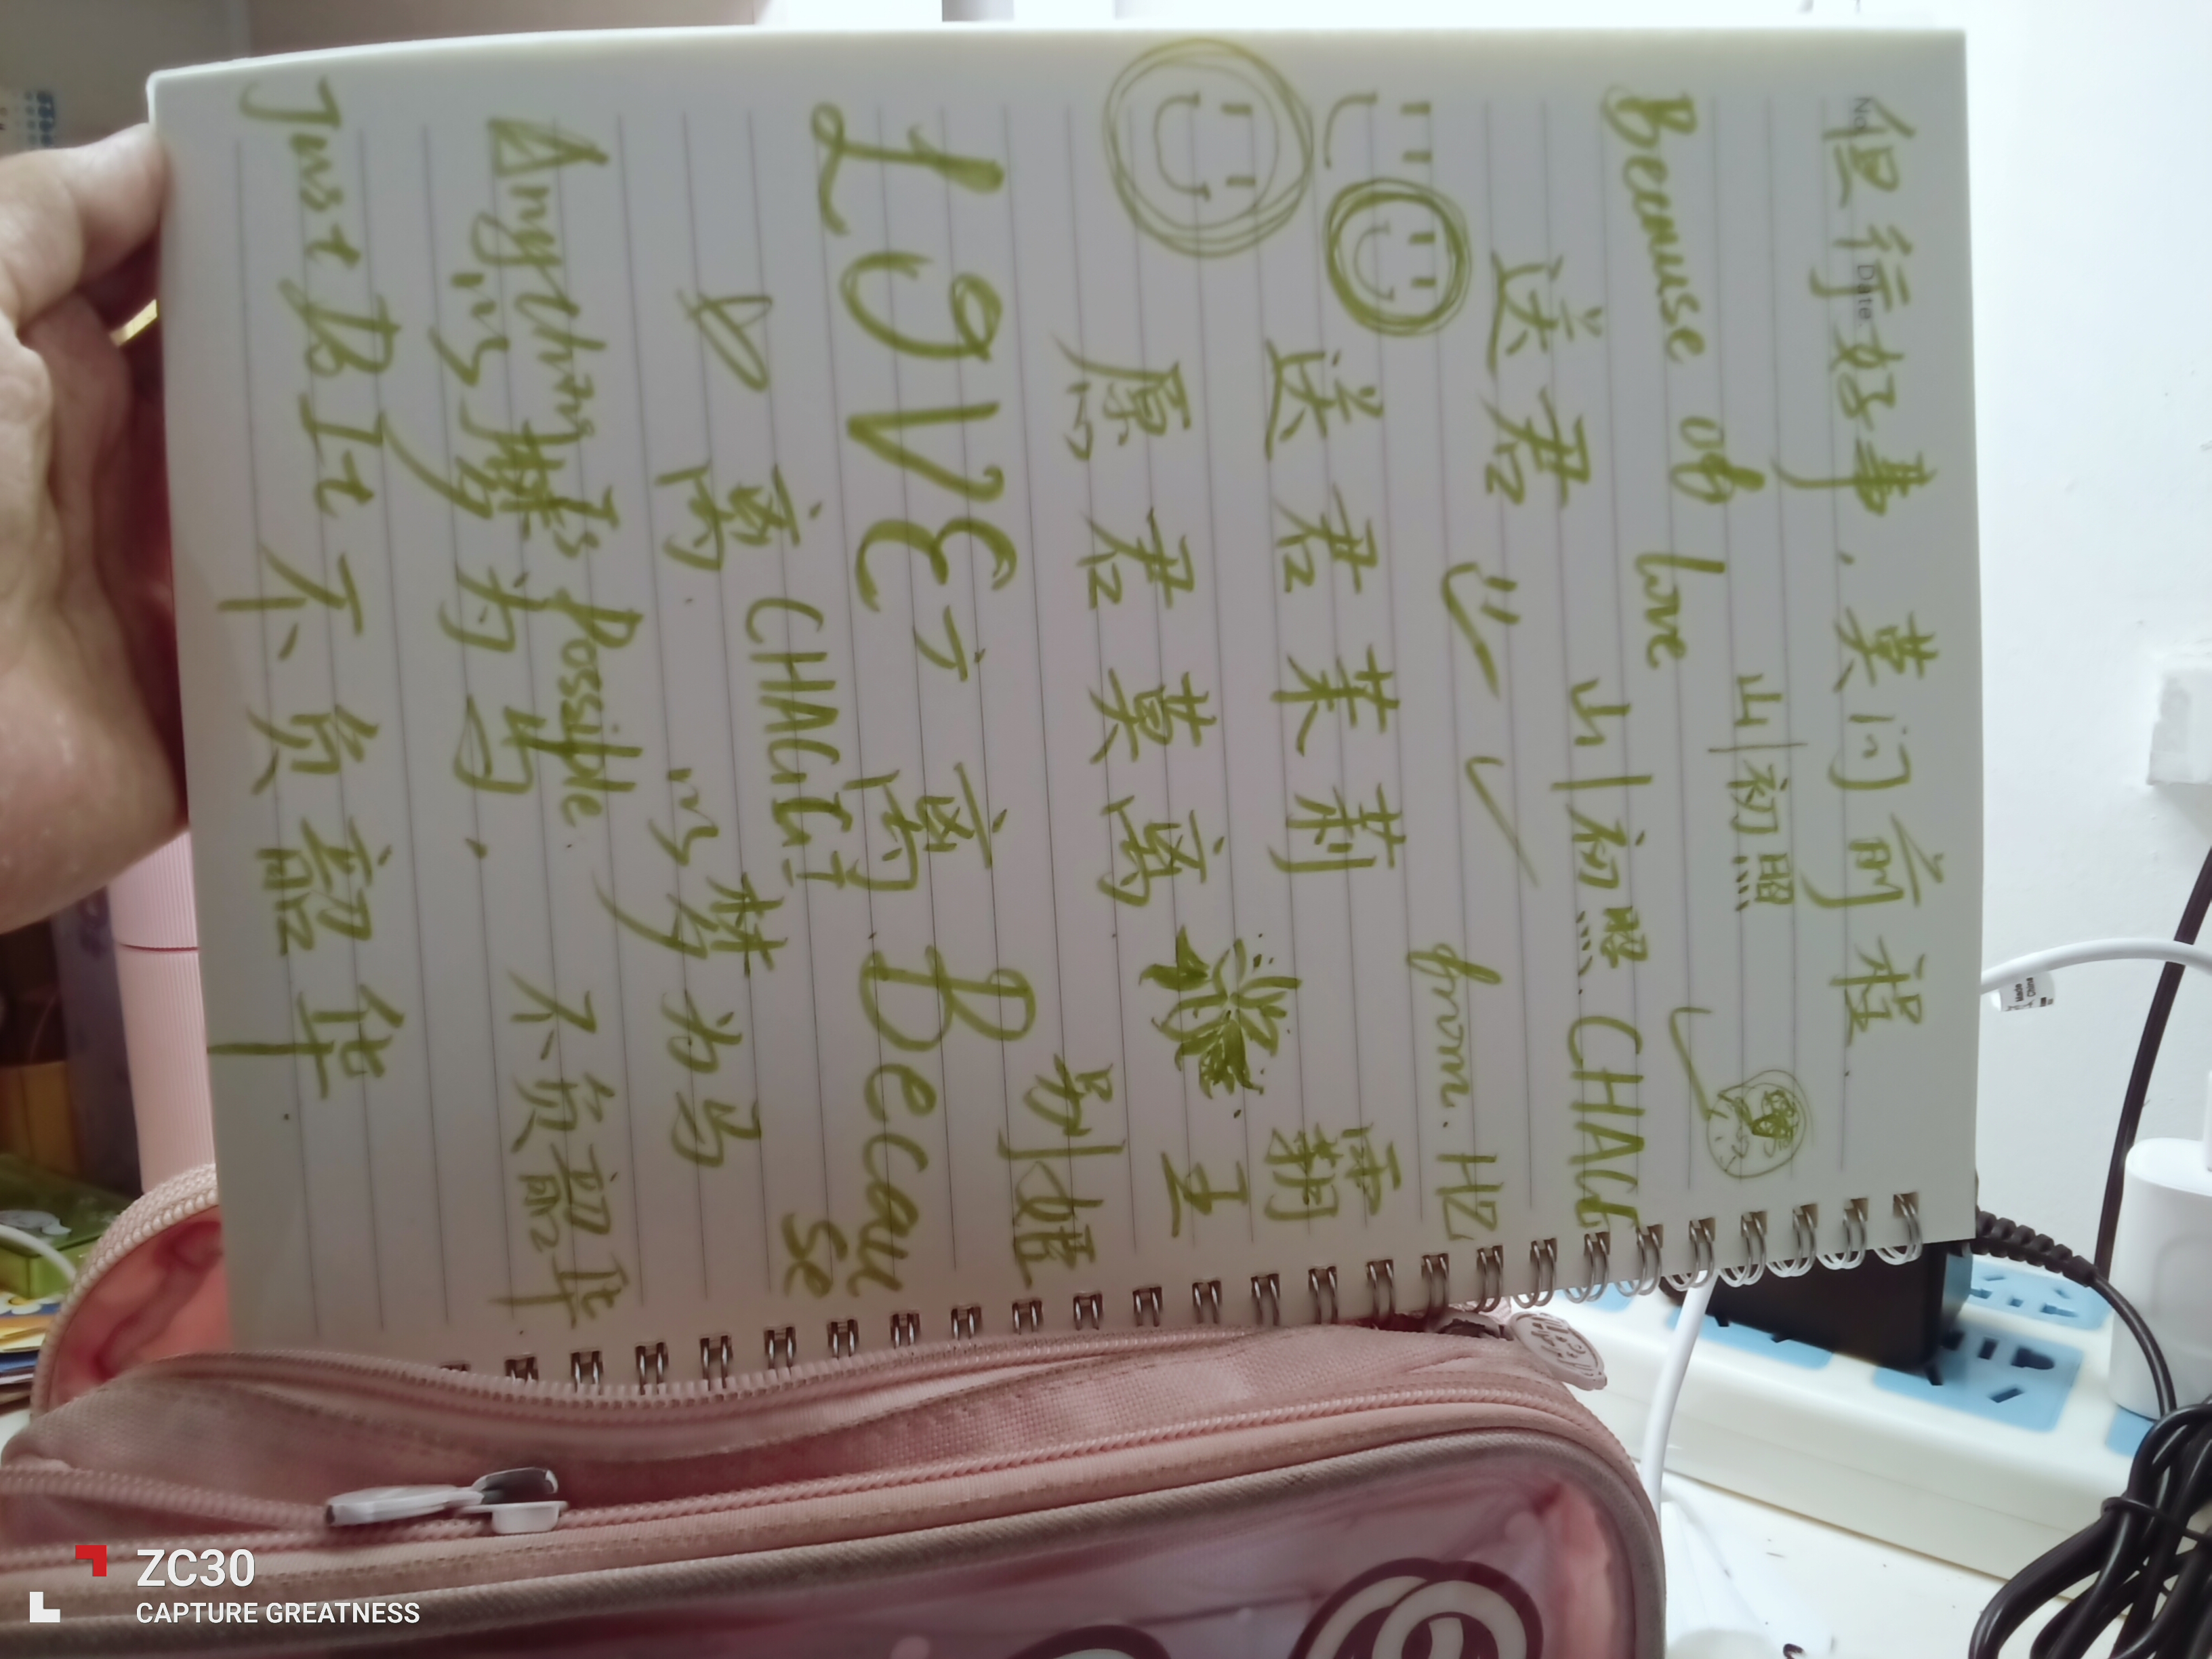 No.
Date.
但行好事，莫问前程
山川初照
Because of love
山川初照. CHAGE
送君
from. HZ
送君茉莉
霸王
愿君莫离
别姬
LOVE 离 Becau
se
离 CHAGE
以梦为马
Anythings Is Possible.
不负韶华
以梦为马.
Just B It 不负韶华
Made
China
ZC30
CAPTURE GREATNESS